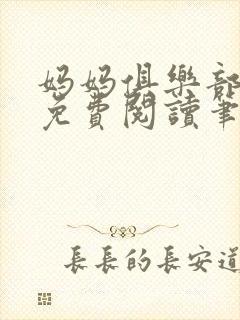 媽媽俱樂部
免費閱讀筆
長長的長安道